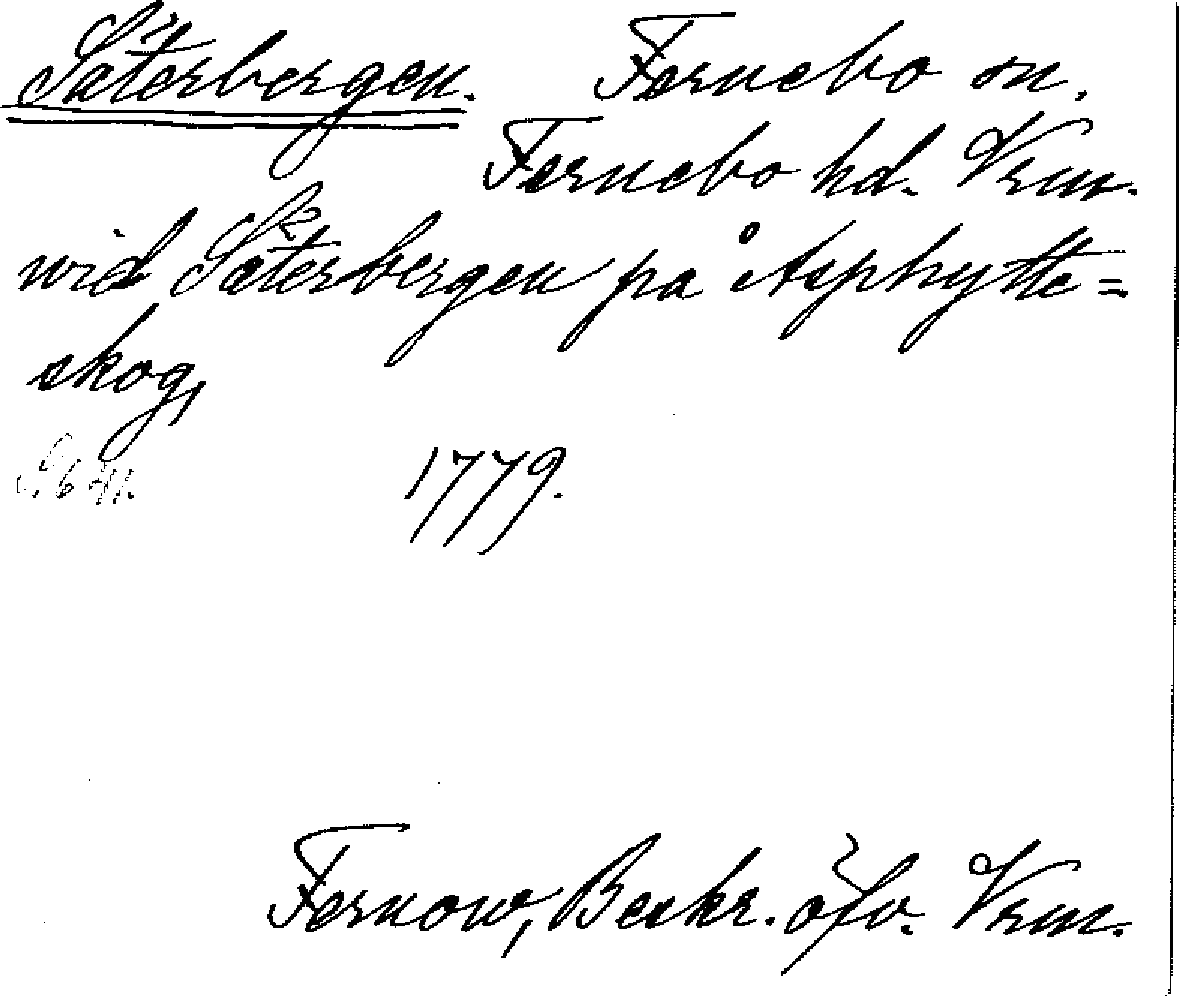 Säterbergen. Fernebo sn.
Fernebo hd. Vrm.
wid Säterbergen på Asphytte=
skog,
1779.
Fernow, Beskr. öfv. Vrm.